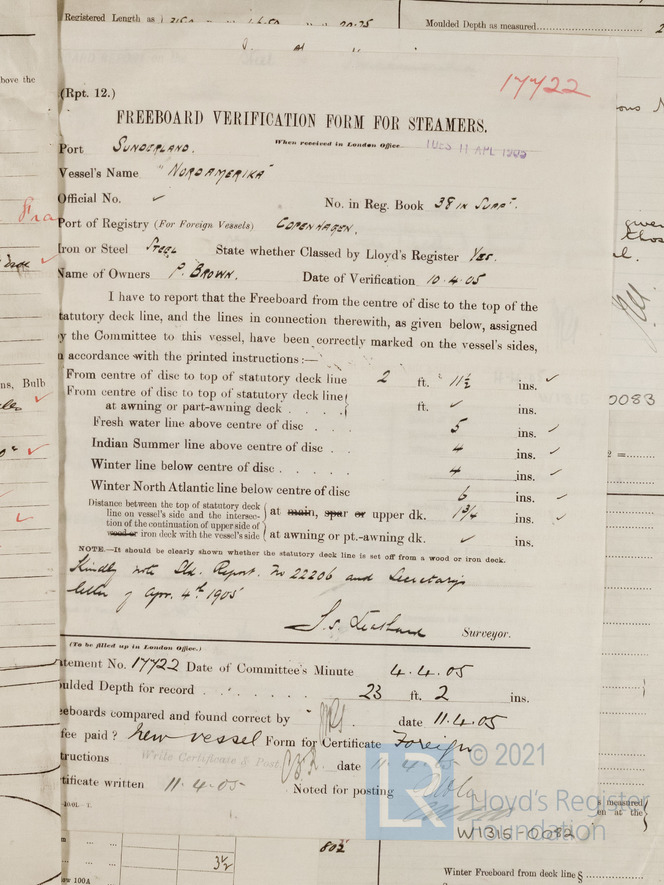 Registered Length as
Moulded Depth as measured
above the
17722
(Rpt. 12.)
FREEBOARD VERIFICATION FORM FOR STEAMERS.
When received in London Office TUES 11 APL 1905
Port SUNDERLAND.
Vessel's Name "NORDAMERIKA"
Official No. ✓ No. in Reg. Book 38 IN SUPPT.
Port of Registry (For Foreign Vessels) COPENHAGEN.
Iron or Steel STEEL State whether Classed by Lloyd's Register YES.
Name of Owners P. BROWN. Date of Verification 10.4.05
I have to report that the Freeboard from the centre of disc to the top of the
tatutory deck line, and the lines in connection therewith, as given below, assigned
y the Committee to this vessel, have been correctly marked on the vessel's sides,
n accordance with the printed instructions :—
From centre of disc to top of statutory deck line 2 ft. 11½ ins. ✓
From centre of disc to top of statutory deck line
at awning or part-awning deck . . . . ft. ✓ ins.
Fresh water line above centre of disc . . 5 ins. ✓
Indian Summer line above centre of disc . . 4 ins. ✓
Winter line below centre of disc . . . . . 4 ins. ✓
Winter North Atlantic line below centre of disc 6 ins. ✓
Distance between the top of statutory deck
line on vessel's side and the intersec-
tion of the continuation of upper side of
wood or iron deck with the vessel's side
at main, spar or upper dk. 1¾ ins. ✓
at awning or pt.-awning dk. ✓ ins.
NOTE.—It should be clearly shown whether the statutory deck line is set off from a wood or iron deck.
Kindly note Sld. Report. No 22206 and Secretary's
letter of Apr. 4th 1905
Surveyor.
(To be filled up in London Office.)
atement No. 17722 Date of Committee's Minute 4.4.05
oulded Depth for record . . . . . . 23 ft. 2 ins.
eeboards compared and found correct by date 11.4.05
fee paid? New vessel Form for Certificate Foreign
tructions Write Certificate & Post date 11.4.05
tificate written 11.4.05 Noted for posting
© 2021
LR
Lloyd's Register
Foundation
W1315-0082
0083
ns, Bulb
s measured
en at the
802
3½
Winter Freeboard from deck line